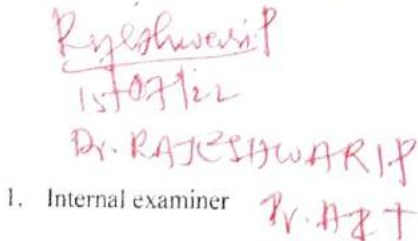 Rajeshwari P
15/07/22
Dr. RAJESHWARI P
1. Internal examiner